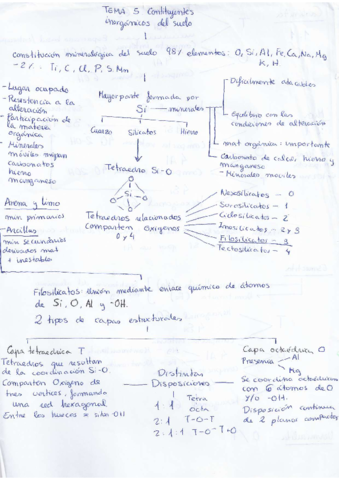 TEMA 5 Contituyentes
inorgánicos del suelo
constitución mineralógica del suelo 98% elementos: O, Si, Al, Fe, Ca, Na, Mg
K, H
-2%. Ti, C, Cl, P, S, Mn
- Lugar ocupado
- Resistencia a la
alteración
- Participación
de la materia
orgánica
- Minerales
móviles
carbonatos
hierro
manganeso
Mayor parte formada por
Si minerales
Cuarzo Silicatos Hierro
Dificilmente alterables
Equilibrio con las
condiciones de alteración
mat orgánica importante
Carbonato de calcio, hierro y
manganeso
- Minerales móviles
Tetraedro Si-O
O
O Si O
O
Arena y limo
min primarios
- Arcillas
min secundarios
derivados mat
+ inestable
Tetraedros relacionados
Comparten Oxígenos
0 y 4
Nesosilicatos - 0
Sorosilicatos - 1
Ciclosilicatos - 2
Inosilicatos - 2 y 3
Filosilicatos - 3
Tectosilicatos - 4
Filosilicatos: Unión mediante enlace químico de átomos
de Si, O, Al y -OH.
2 tipos de capas estructurales
Capa tetraédrica T
Tetraedros que resultan
de la coordinación Si-O
Comparten Oxígeno de
tres vértices, formando
una red hexagonal
Entre los huecos se sitúa OH
Distintas
Disposiciones
Tetra
1:1 Octa
2:1 T-O-T
2:1:1 T-O-T+O
Capa octaédrica O
Presencia Al
Mg
Se coordina octaédricam
con 6 átomos de O
Y/o -OH.
Disposición continua
de 2 planos compactos